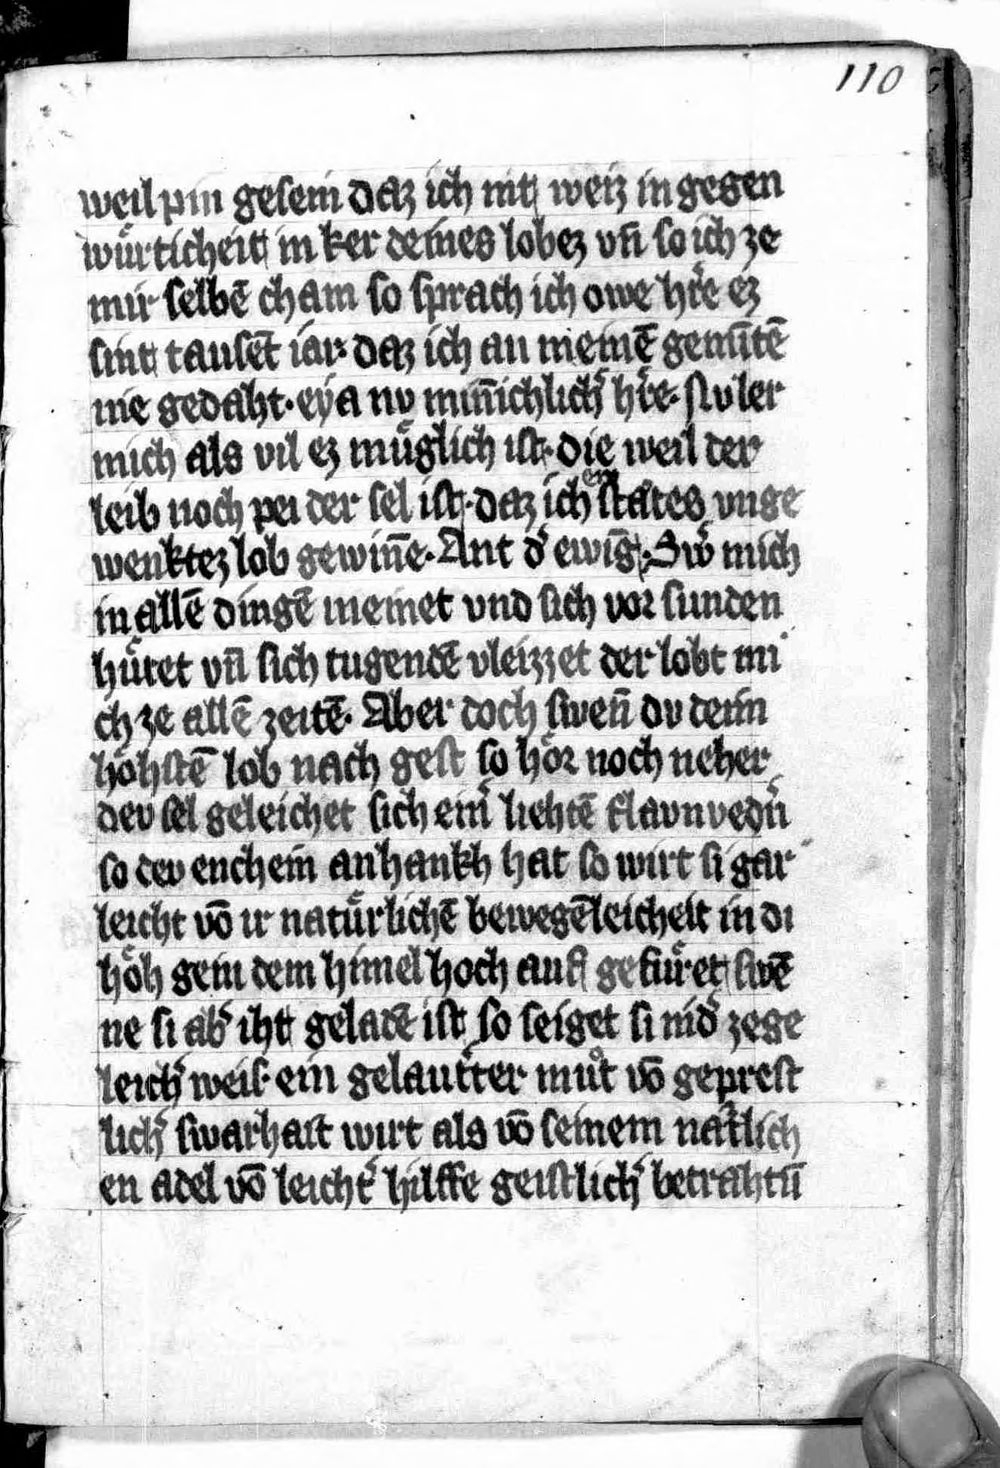 110
weil pin gesein daz ich nit weiz in gegen
wuͤrticheit in ker deines lobez vn̄ so ich ze
mir selbē cham so sprach ich owe hr̄e ez
sint tausēt iar· daz ich an meinē gemuͤtē
nie gedaht· eya nv min̄ichlich̓ hr̄e· Nv ler
mich als vil ez muͤglich ist· die weil der
leib noch pei der sel ist· daz ich ein staͤtes vnge
wenktez lob gewin̄e· Ant d̓ ewig̓· Sw̓ mich
in allē dingē meinet vnd sich vor sunden
huͤtet vn̄ sich tugendē vleizzet der lobt mi
ch ze allē zeitē· Aber doch swen̄ dv deim
hoͤhstē lob nach gest so hoͤr noch neher
dev sel geleichet sich eim̓ liehtē flavnvedn̓
so dev enchein anhankh hat so wirt si gar
leicht vō ir natuͤrlichē bewegēleicheit in di
hoͤh gein dem himel hoch auf gefuͤret swē
ne si ab̓ iht geladē ist so seiget si nid̓ ze ge
leich̓ weis· ein gelautter muͦt vō geprest
lich̓ swarhait wirt als vō seinem nat̓lich
en adel vō leicht̓ hilffe geistlich̓ betrahtū